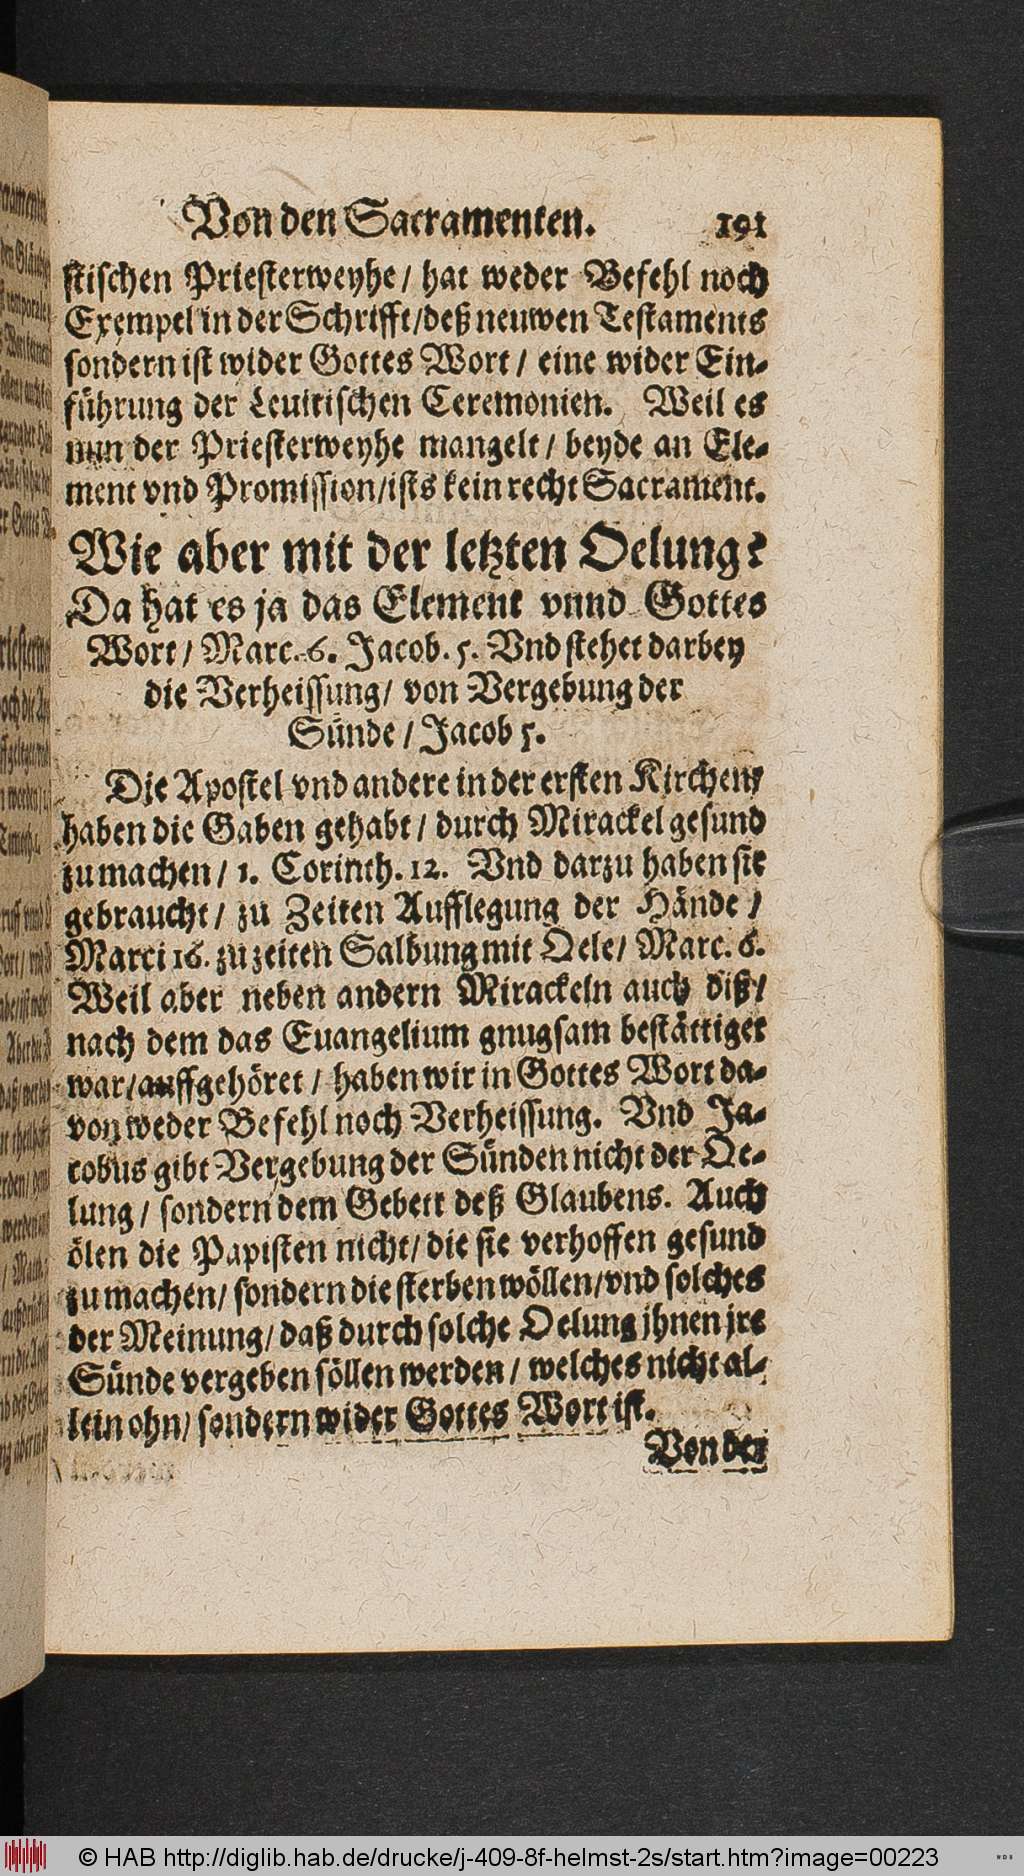 Von den Sacramenten. 191
stischen Priesterweyhe / hat weder Befehl noch
Exempel in der Schrifft / deß neuwen Testaments
sondern ist wider Gottes Wort / eine wider Ein-
führung der Leuitischen Ceremonien. Weil es
nun der Priesterweyhe mangelt / beyde an Ele-
ment vnd Promission / ists kein recht Sacrament.
Wie aber mit der letzten Oelung?
Da hat es ja das Element vnnd Gottes
Wort / Marc. 6. Jacob. 5. Vnd stehet darbey
die Verheissung / von Vergebung der
Sünde / Jacob 5.
Die Apostel vnd andere in der ersten Kirchen /
haben die Gaben gehabt / durch Mirackel gesund
zu machen / 1. Corinth. 12. Vnd darzu haben sie
gebraucht / zu Zeiten Aufflegung der Hände /
Marci 16. zu zeiten Salbung mit Oele / Marc. 6.
Weil aber neben andern Mirackeln auch diß /
nach dem das Euangelium gnugsam bestättiget
war / auffgehöret / haben wir in Gottes Wort da-
von weder Befehl noch Verheissung. Vnd Ja-
cobus gibt Vergebung der Sünden nicht der Oe-
lung / sondern dem Gebett deß Glaubens. Auch
ölen die Papisten nicht / die sie verhoffen gesund
zu machen / sondern die sterben wöllen / vnd solches
der Meinung / daß durch solche Oelung jhnen jre
Sünde vergeben söllen werden / welches nicht al-
lein ohn / sondern wider Gottes Wort ist.
Von der
© HAB http://diglib.hab.de/drucke/j-409-8f-helmst-2s/start.htm?image=00223